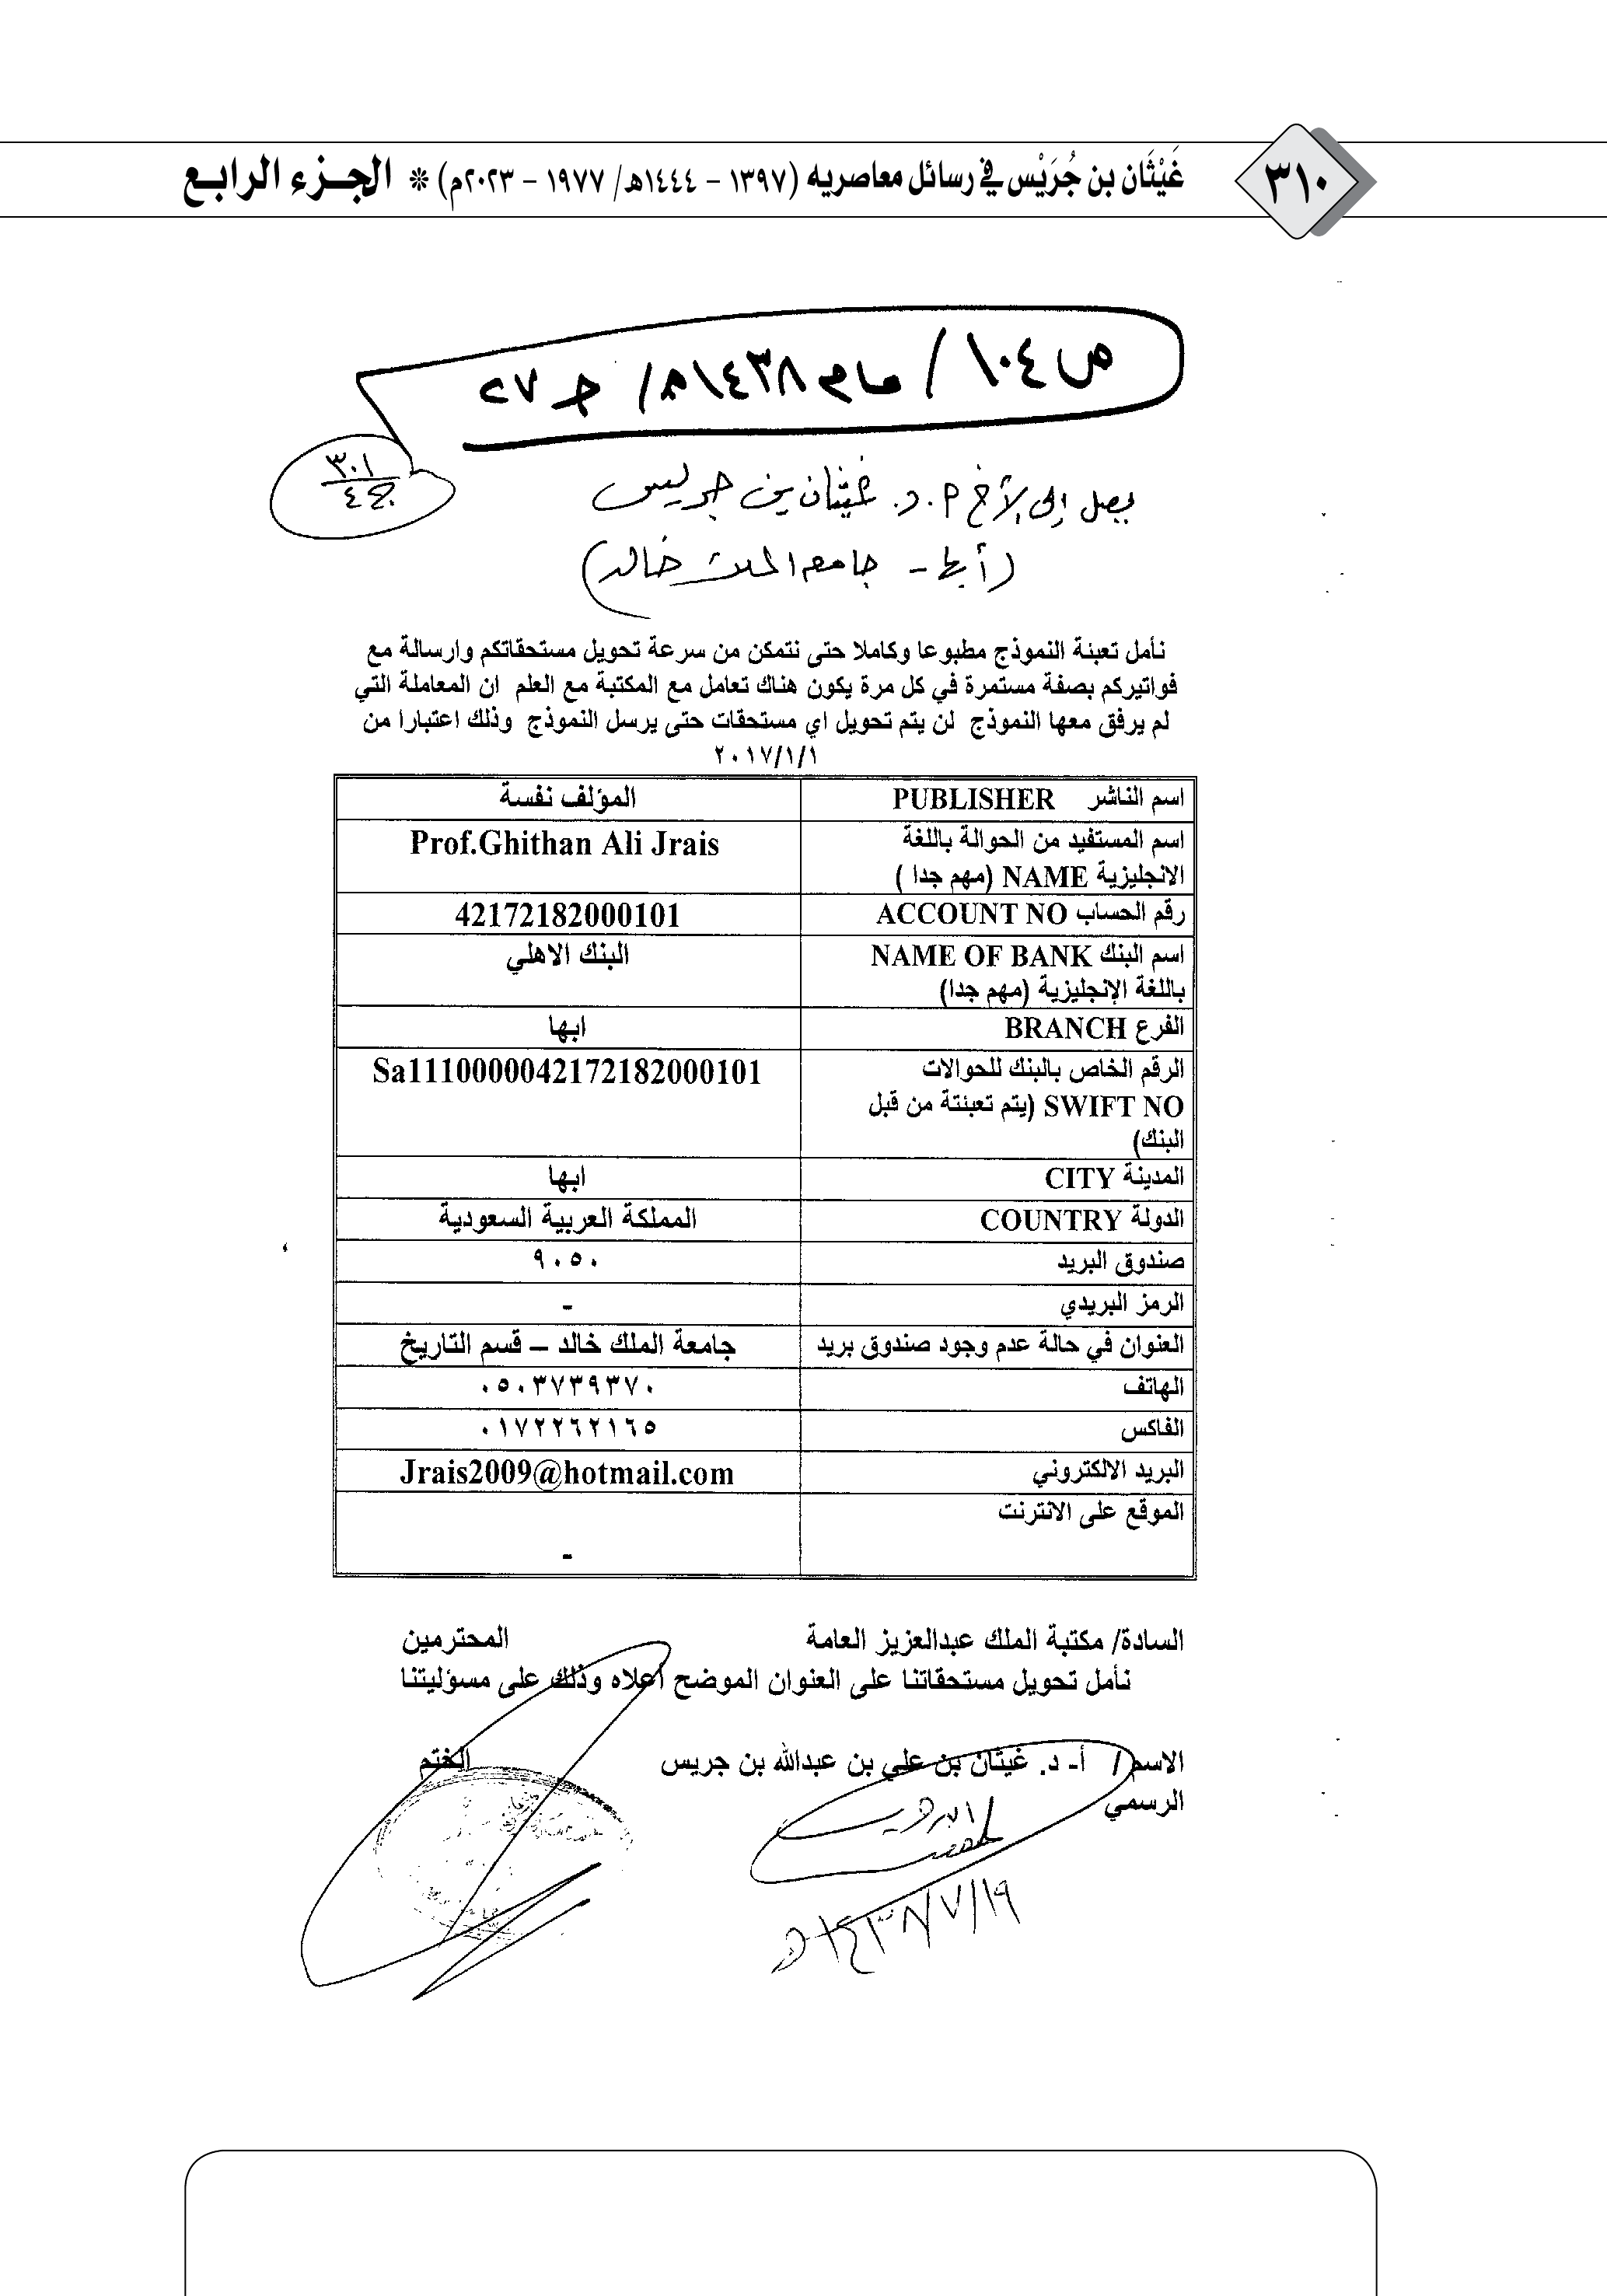 ٣١٠
غَيْثَان بن جُرَيْس في رسائل معاصريه (١٣٩٧ - ١٤٤٤هـ/ ١٩٧٧ - ٢٠٢٣م) * الجـزء الرابـع
ص ١٠٤ / عام ١٤٣٨هـ / ج ٢٧
٣٠١
ج ٤
يصل إلى الأخ أ. د. غيثان بن جريس
(أبها - جامعة الملك خالد)
نأمل تعبئة النموذج مطبوعا وكاملا حتى نتمكن من سرعة تحويل مستحقاتكم وارسالة مع
فواتيركم بصفة مستمرة في كل مرة يكون هناك تعامل مع المكتبة مع العلم ان المعاملة التي
لم يرفق معها النموذج لن يتم تحويل اي مستحقات حتى يرسل النموذج وذلك اعتبارا من
٢٠١٧/١/١
اسم الناشر PUBLISHER المؤلف نفسة
اسم المستفيد من الحوالة باللغة Prof.Ghithan Ali Jrais
الانجليزية NAME (مهم جدا )
رقم الحساب ACCOUNT NO 42172182000101
اسم البنك NAME OF BANK البنك الاهلي
باللغة الإنجليزية (مهم جدا)
الفرع BRANCH ابها
الرقم الخاص بالبنك للحوالات Sa1110000042172182000101
SWIFT NO (يتم تعبئتة من قبل
البنك)
المدينة CITY ابها
الدولة COUNTRY المملكة العربية السعودية
صندوق البريد ٩٠٥٠
الرمز البريدي -
العنوان في حالة عدم وجود صندوق بريد جامعة الملك خالد – قسم التاريخ
الهاتف ٠٥٠٣٧٣٩٣٧٠
الفاكس ٠١٧٢٢٦٢١٦٥
البريد الالكتروني Jrais2009@hotmail.com
الموقع على الانترنت
-
السادة/ مكتبة الملك عبدالعزيز العامة المحترمين
نأمل تحويل مستحقاتنا على العنوان الموضح أعلاه وذلك على مسؤليتنا
الاسم / أ- د. غيثان بن علي بن عبدالله بن جريس الختم
الرسمي
١٤٣٨/٧/١٩هـ